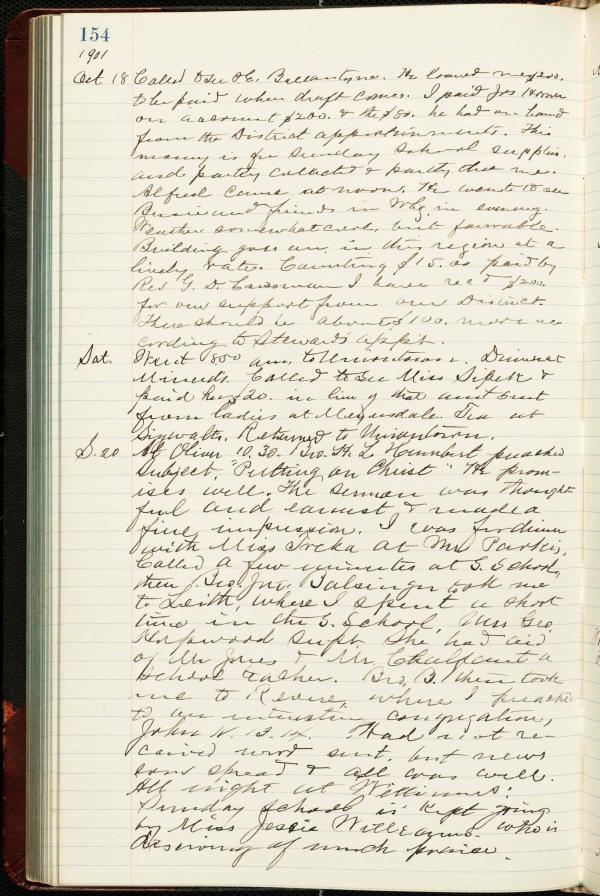 154
1901
Oct 18 Called to see P. E. Ballantyne. He loaned me $200.
to be paid when draft comes. I paid Jos
on account $200. & the $80. he had on hand
from the District apportionments. This
money is for Sunday School supplies.
and partly collected & partly due me.
Alfred came at noon. He went to see
Bessie and friends in in evening.
Weather somewhat cool, but favorable.
Building goes on in this region at a
lively rate. Counting $15. as paid by
Rev G. D. I have rec'd $200.
for our support from our District.
There should be about $100. more ac
cording to Stewards appt.
Sat. Went 800 am, to Uniontown. Dinner at
Minerds. Called to see Miss &
paid her $20. in lieu of that amt sent
from ladies at Meyersdale. Tea at
Returned to Uniontown.
S. 20 Mt Olive 10.30. Bro. H. L. Humbert preached
Subject, "Putting on Christ" He prom-
ises well. The sermon was thought
ful and earnest & made a
fine impression. I was for dinner
with Miss at Mr Parkis,
Called a few minutes at S. School,
then Bro. Jno. Balsinger took me
to Leith, where I spent a short
time in the S. School, Mrs Geo
Hopwood Supt. She had aid
of Mr Jones & Mr. Chalfant a
School teacher. Bro, B. then took
me to Revere, where I preached
to an interesting congregation,
John 10. 13.14. Had not re-
ceived word sent, but news
soon spread & all was well.
All night at
Sunday School is kept going
by Miss Jessie Williams who is
deserving of much praise.